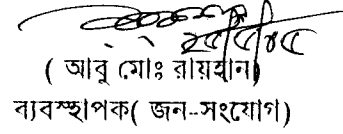 ( আবু মোঃ রায়হান)
ব্যবস্থাপক( জন--সংযোগ)